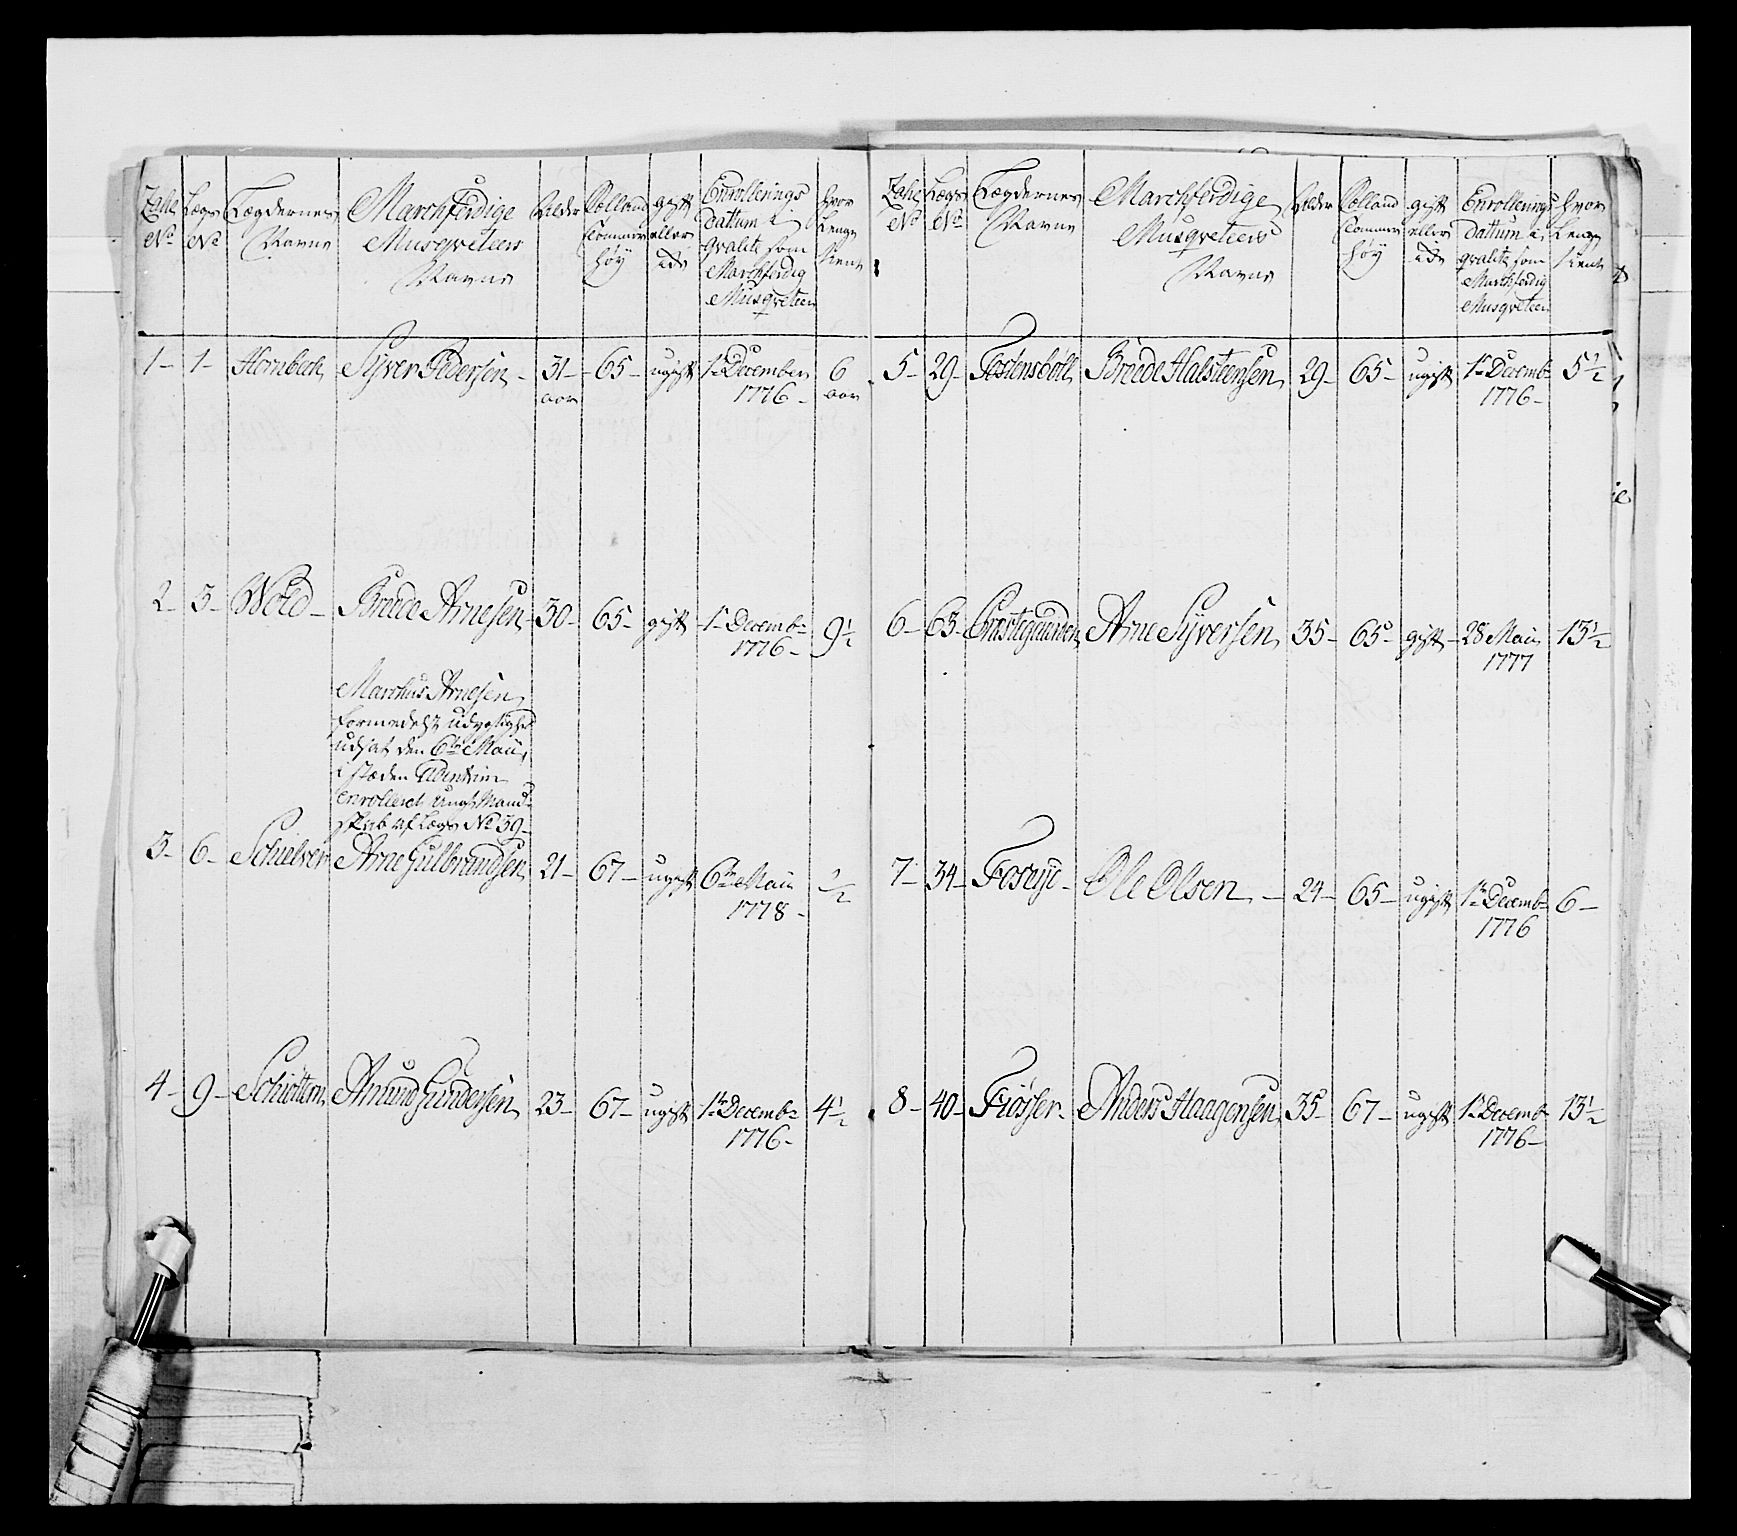 Tahl No
Lægs No
Lægdernes Navne
Marchferdige Musqveteers Navne
Alder
Tolland Tommer høy
gift eller Ide
Enrollerings Dattum i qvalite som Marchferdig Musqveteer
Hvor Lenge tient
1 - 1 - Hornbech Syver Pedersen - 31 aar - 65 - ugift 1te December 1776 - 6 aar
2 - 5 - Wold - Brede Arnesen - 30 - 65 - gift - 1te Decembr 1776 - 9½
Marchus Arnesen
formedelst udygtighed
udsat den 6te Maii,
i stæden
enrolleret ungt Mand-
skab af Lægs No 39 -
3 - 6 - Schielver Arne Gulbrandsen 21 - 67 - ugift 6te Maii 1778 - ½
4 - 9 - Schiøttern Amund Gundersen 23 - 67 - ugift 1te Decembr 1776 - 4½
Tahl No
Lægs No
Lægdernes Navne
Marchferdige Musqveteers Navne
Alder
Tolland Tommer høy
gift eller Ide
Enrollerings Dattum i qvalite som Marchferdig Musqveteer
Hvor Lenge tient
5 - 29 - Tostensbøll Brede Halsteensen 29 - 65 - ugift 1te Decembr 1776 - 5½
6 - 63 - Præstegaarden Arne Syversen 35 - 65 - gift - 28 Maii 1777 13½
7 - 34 - Foseje - Ole Olsen - 24 - 65 - ugift 1te Decembr 1776 6 -
8 - 40 - Fiøsser - Anders Haagensen 35 - 67 - ugift 1te Decembr 1776 - 13½